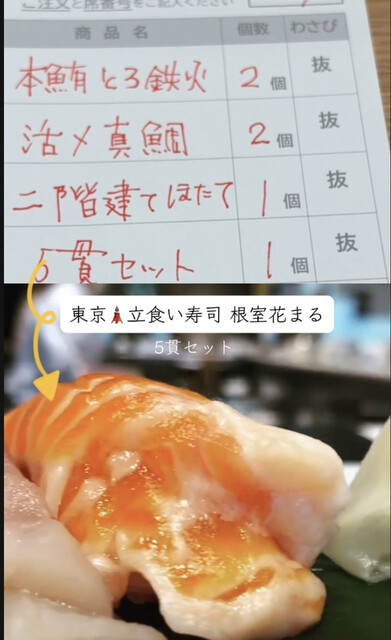 ご注文と席番号をご記入ください
商品名 個数 わさび
本鮪とろ鉄火 2個 抜
活〆真鯛 2個 抜
二階建てほたて 1個 抜
5貫セット 1個 抜
東京🗼立食い寿司 根室花まる
5貫セット